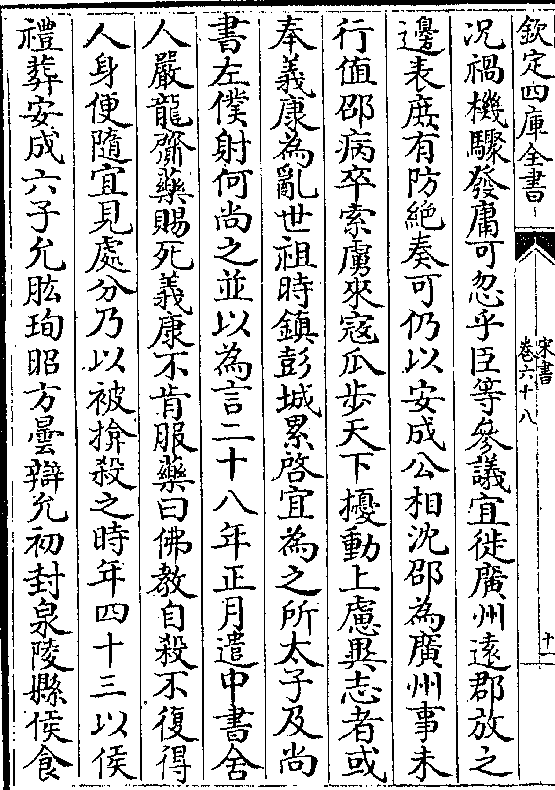 欽定四庫全書
宋書
卷六十八
十一
況禍機驟發庸可忽乎臣等參議宜徙廣州遠郡放之
邊表庶有防絶奏可仍以安成公相沈邵為廣州事未
行值邵病卒索虜來寇瓜步天下擾動上慮異志者或
奉義康為亂世祖時鎮彭城累啓宜為之所太子及尚
書左僕射何尚之並以為言二十八年正月遣中書舍
人嚴龍齎藥賜死義康不肯服藥曰佛教自殺不復得
人身便隨宜見處分乃以被揜殺之時年四十三以侯
禮葬安成六子允肱珣昭方曇辯允初封泉陵縣侯食